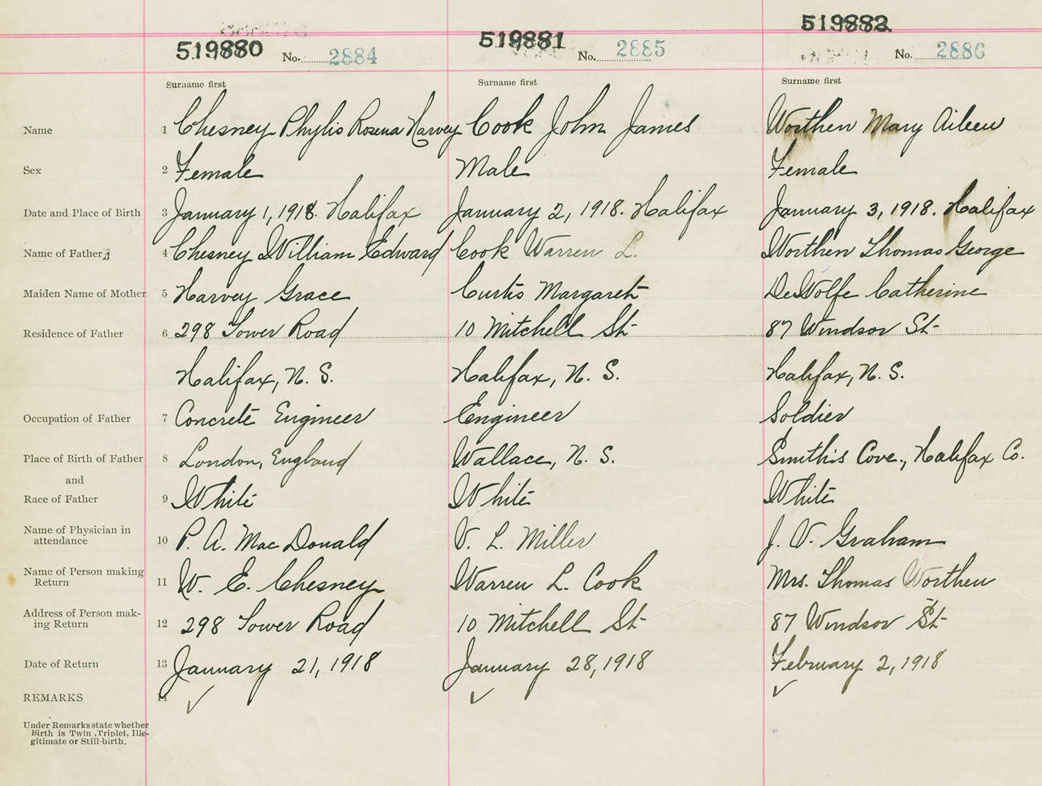 519880 No. 2884 519881 No. 2885 519882 No. 2886
Surname first Surname first Surname first
Name 1 Chesney Phylis Rosena Harvey Cook John James Worthen Mary Aileen
Sex 2 Female Male Female
Date and Place of Birth 3 January 1, 1918. Halifax January 2, 1918. Halifax January 3, 1918. Halifax
Name of Father 4 Chesney William Edward Cook Warren L. Worthen Thomas George
Maiden Name of Mother 5 Harvey Grace Curtis Margaret DeWolfe Catherine
Residence of Father 6 298 Tower Road 10 Mitchell St. 87 Windsor St.
Halifax, N. S. Halifax, N. S. Halifax, N. S.
Occupation of Father 7 Concrete Engineer Engineer Soldier
Place of Birth of Father 8 London, England Wallace, N. S. Smith's Cove., Halifax Co.
and
Race of Father 9 White White White
Name of Physician in
attendance 10 P. A. MacDonald V. L. Miller J. V. Graham
Name of Person making
Return 11 W. E. Chesney Warren L. Cook Mrs. Thomas Worthen
Address of Person mak-
ing Return 12 298 Tower Road 10 Mitchell St. 87 Windsor St.
Date of Return 13 January 21, 1918 January 28, 1918 February 2, 1918
REMARKS 14 ✓ ✓ ✓
Under Remarks state whether
Birth is Twin, Triplet, Ille-
gitimate or Still-birth.